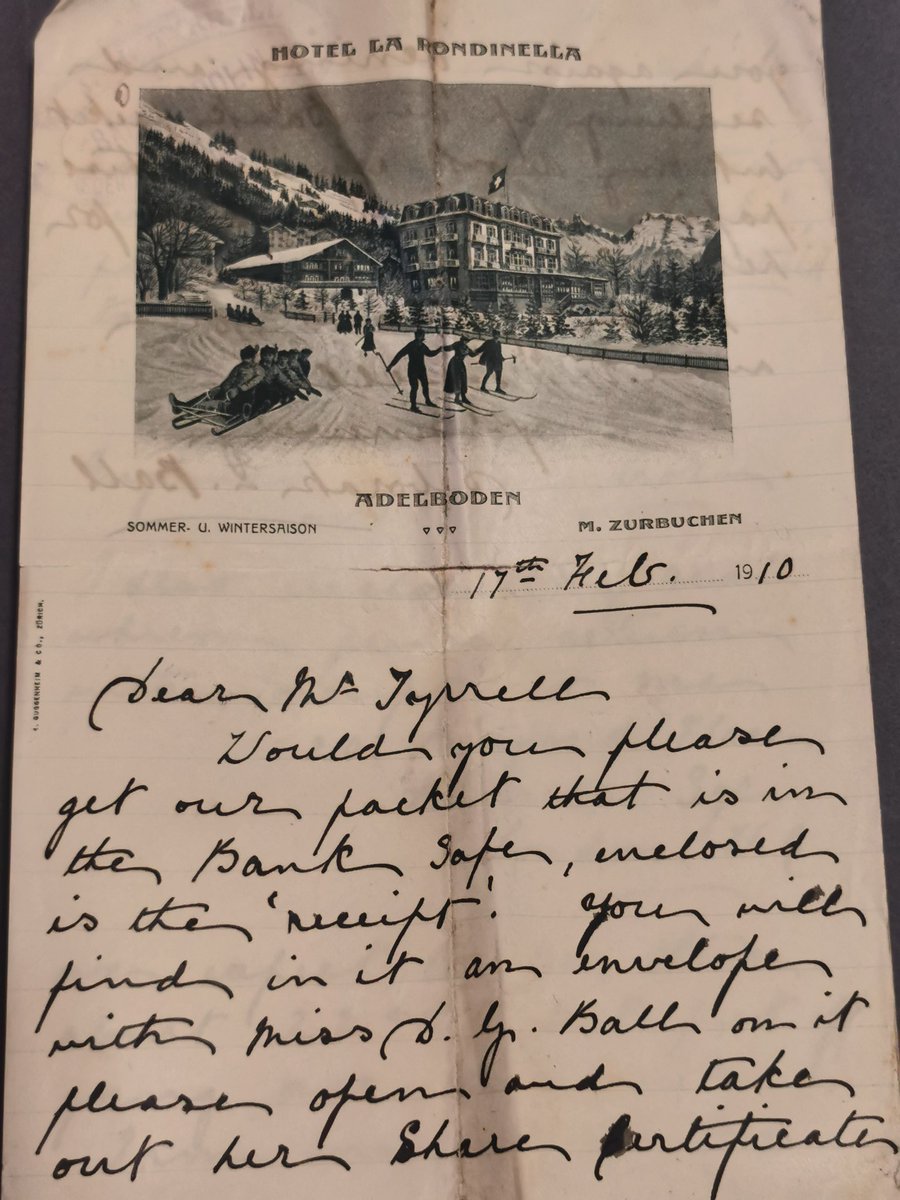 HOTEL LA RONDINELLA
ADELBODEN
SOMMER- U. WINTERSAISON
M. ZURBUCHEN
17th Feb. 1910
GUGGENHEIM & CO., ZÜRICH.
Dear Mr Tyrrell
Would you please
get our packet that is in
the Bank Safe, enclosed
is the 'receipt'. You will
find in it an envelope
with Miss D. G. Ball on it
please open and take
out her Share Certificate